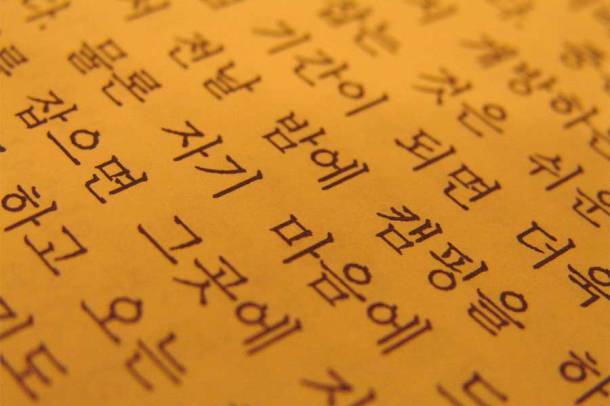 개방하는
잡는 것은 쉬운
기간이 되면 더욱
전날 밤에 캠핑을 하
물론 자기 마음에 드
잡으면 그곳에
하고 오는